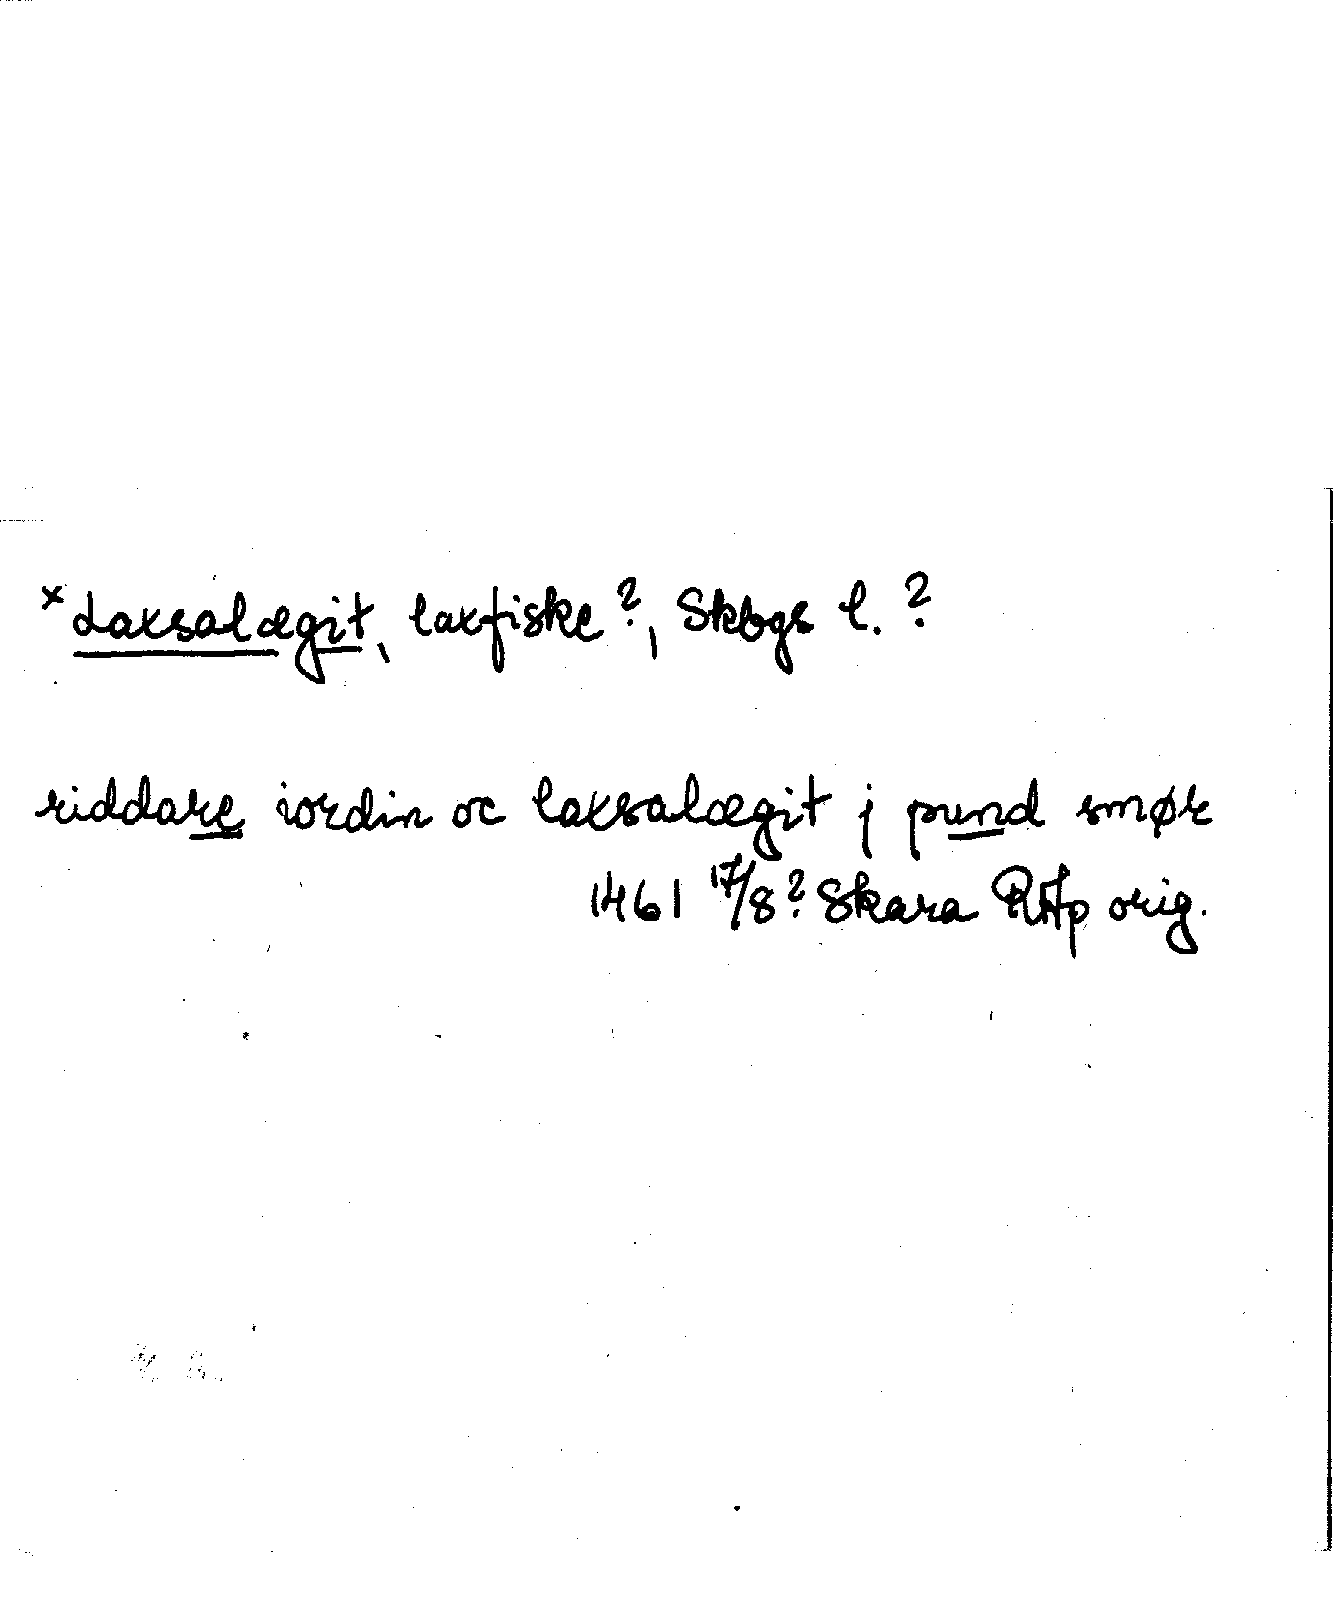 × Laxsalægit, laxfiske?, Skbgs l.?
riddare iordin oc laxsalægit j pund smør
1461 17/8? Skara RAp orig.